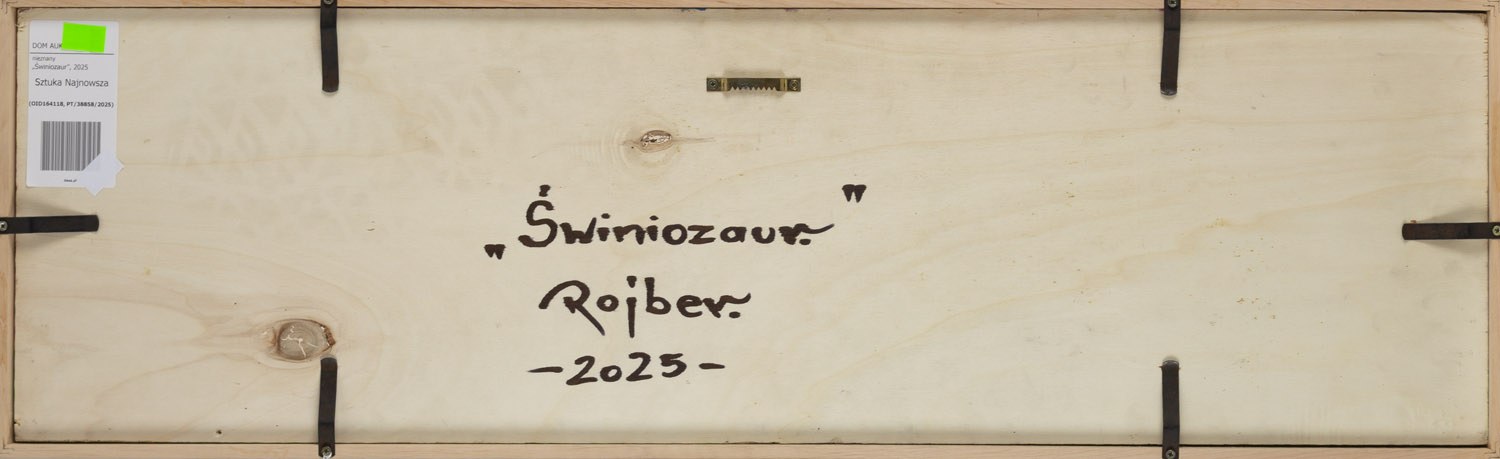 DOM
nieznany
„Świniozaur”, 2025
Sztuka Najnowsza
(DID164118, PT/38858/2025)
„Świniozaur.”
Rojber.
-2025-